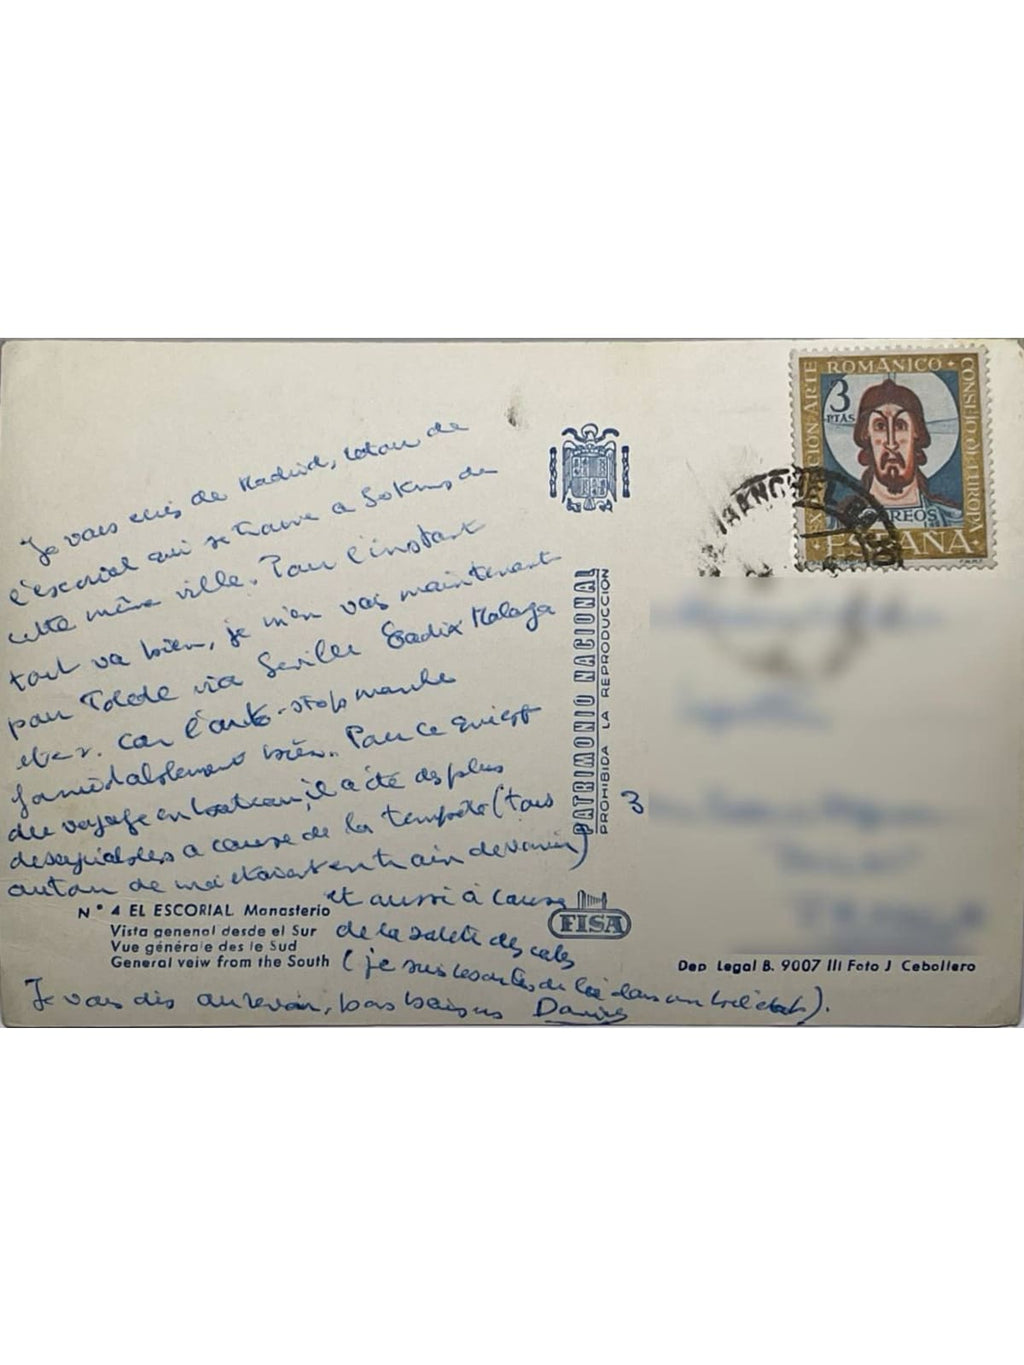 Je vous écris de Madrid, retour de
l'escorial qui se trouve a 50 Kms de
cette même ville. Pour l'instant
tout va bien, je m'en vas maintenant
par Tolede via Seville Cadix Malaga
etc. Car l'auto-stop marche
formidablement bien. Pour ce qui est
du voyage en bateau, il a été des plus
desagréables a cause de la tempête (tous
autour de moi étaient en train de vomir)
et aussi à cause
de la saleté des cales
(je suis de là dans un bel état).
Je vous dis au revoir, bons baisers
3
N° 4 EL ESCORIAL Monasterio
Vista general desde el Sur
Vue générale des le Sud
General veiw from the South
PATRIMONIO NACIONAL
PROHIBIDA LA REPRODUCCIÓN
FISA
Dep Legal B. 9007 III Foto J Cebollero
EXPOSICION·ARTE
ROMÁNICO
CONSEJO·DE·EUROPA
3
PTAS
CORREOS
ESPAÑA